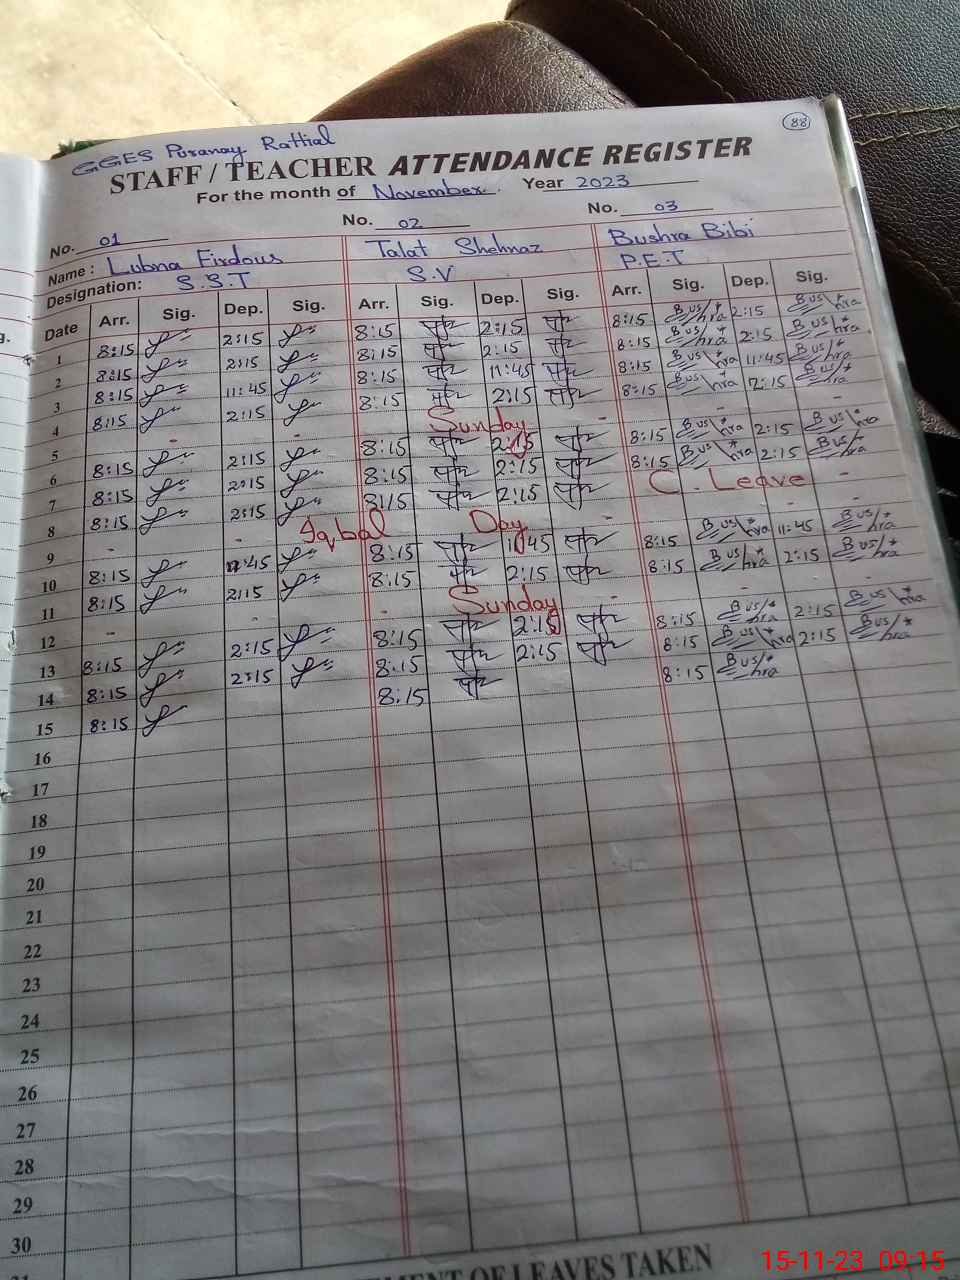 88
GGES Puranay Rattial
STAFF / TEACHER ATTENDANCE REGISTER
For the month of November. Year 2023
No. 01 No. 02 No. 03
Name : Lubna Firdous Talat Shehnaz Bushra Bibi
Designation: S.S.T S.V P.E.T
Date Arr. Sig. Dep. Sig. Arr. Sig. Dep. Sig. Arr. Sig. Dep. Sig.
1 8:15 2:15 8:15 2:15 8:15 Bushra 2:15 Bushra
2 8:15 2:15 8:15 2:15 8:15 Bushra 2:15 Bushra
3 8:15 11:45 8:15 11:45 8:15 Bushra 11:45 Bushra
4 8:15 2:15 8:15 2:15 8:15 Bushra 2:15 Bushra
5 - - Sunday - - -
6 8:15 2:15 8:15 2:15 8:15 Bushra 2:15 Bushra
7 8:15 2:15 8:15 2:15 8:15 Bushra 2:15 Bushra
8 8:15 2:15 8:15 2:15 C. Leave -
9 - - Iqbal Day - - -
10 8:15 11:45 8:15 11:45 8:15 Bushra 11:45 Bushra
11 8:15 2:15 8:15 2:15 8:15 Bushra 2:15 Bushra
12 - - Sunday - - -
13 8:15 2:15 8:15 2:15 8:15 Bushra 2:15 Bushra
14 8:15 2:15 8:15 2:15 8:15 Bushra 2:15 Bushra
15 8:15 8:15 8:15 Bushra
16
17
18
19
20
21
22
23
24
25
26
27
28
29
30
31
OF LEAVES TAKEN
15-11-23 09:15